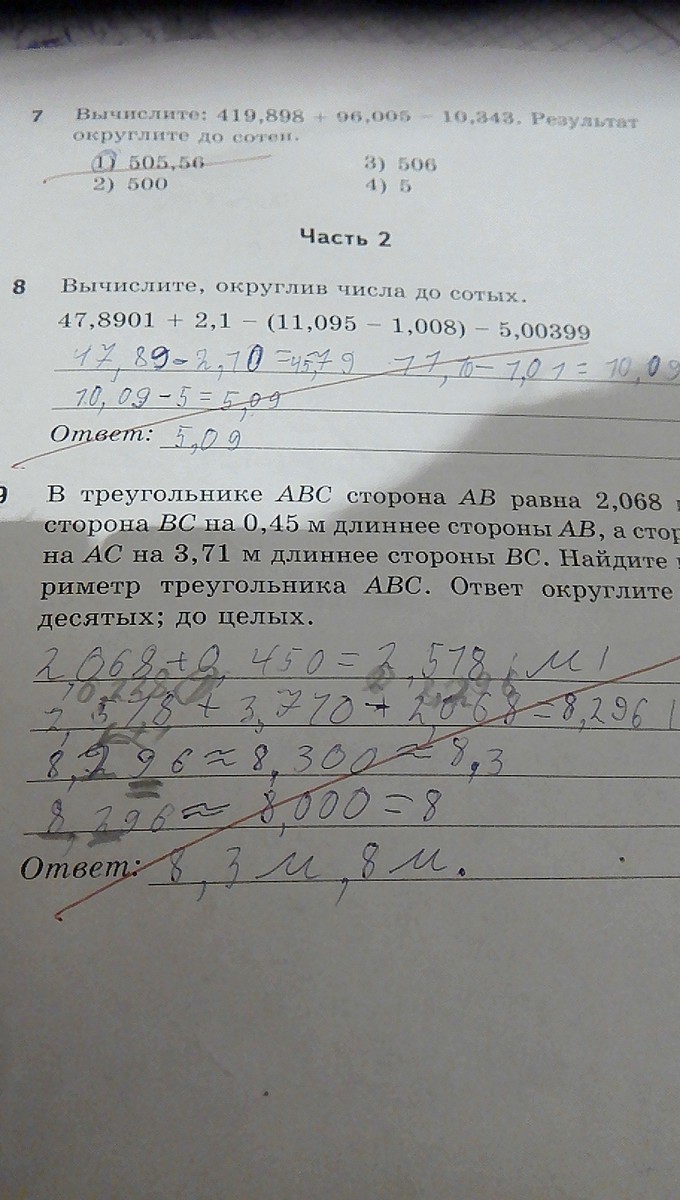 7 Вычислите: 419,898 + 96,005 − 10,343. Результат
округлите до сотен.
1) 505,56 3) 506
2) 500 4) 5
Часть 2
8 Вычислите, округлив числа до сотых.
47,8901 + 2,1 − (11,095 − 1,008) − 5,00399
47,89 - 2,10 = 45,79 11,10 - 1,01 = 10,09
10,09 - 5 = 5,09
Ответ: 5,09
9 В треугольнике ABC сторона AB равна 2,068
сторона BC на 0,45 м длиннее стороны AB, а стор
на AC на 3,71 м длиннее стороны BC. Найдите
риметр треугольника ABC. Ответ округлите
десятых; до целых.
2,068 + 0,450 = 2,518 м
2,518 + 3,710 + 2,068 = 8,296
8,296 ≈ 8,300 ≈ 8,3
8,296 ≈ 8,000 = 8
Ответ: 8,3 м, 8 м.